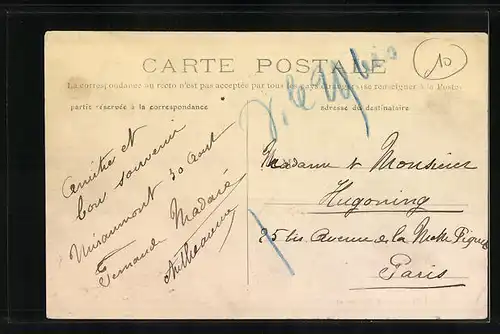 CARTE POSTALE
La correspondance au recto n'est pas acceptée par tous les pays étrangers se renseigner à la Poste
partie réservée à la correspondance
adresse du destinataire
10
Amitié et
bon souvenir
Miraumont 30 Aout
Fernande
Madame & Monsieur
Hugoning
25 bis Avenue de la Motte Piquet
Paris